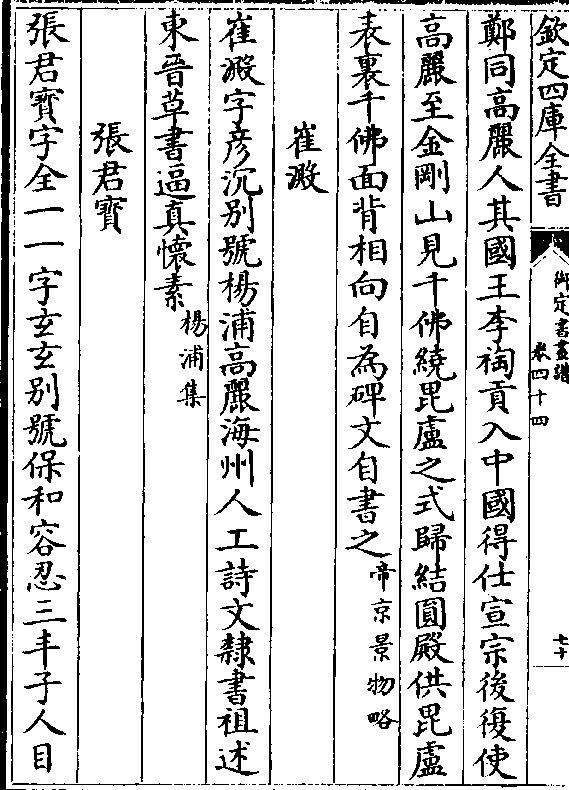 欽定四庫全書
御定書畫譜
卷四十四
七十
鄭同高麗人其國王李祹貢入中國得仕宣宗後復使
高麗至金剛山見千佛繞毘盧之式歸結圓殿供毘盧
表裏千佛面背相向自為碑文自書之帝京景物略
崔澱
崔澱字彥沉別號楊浦高麗海州人工詩文隸書祖述
東晉草書逼真懷素楊浦集
張君寳
張君寳字全一一字玄玄別號保和容忍三丰子人目